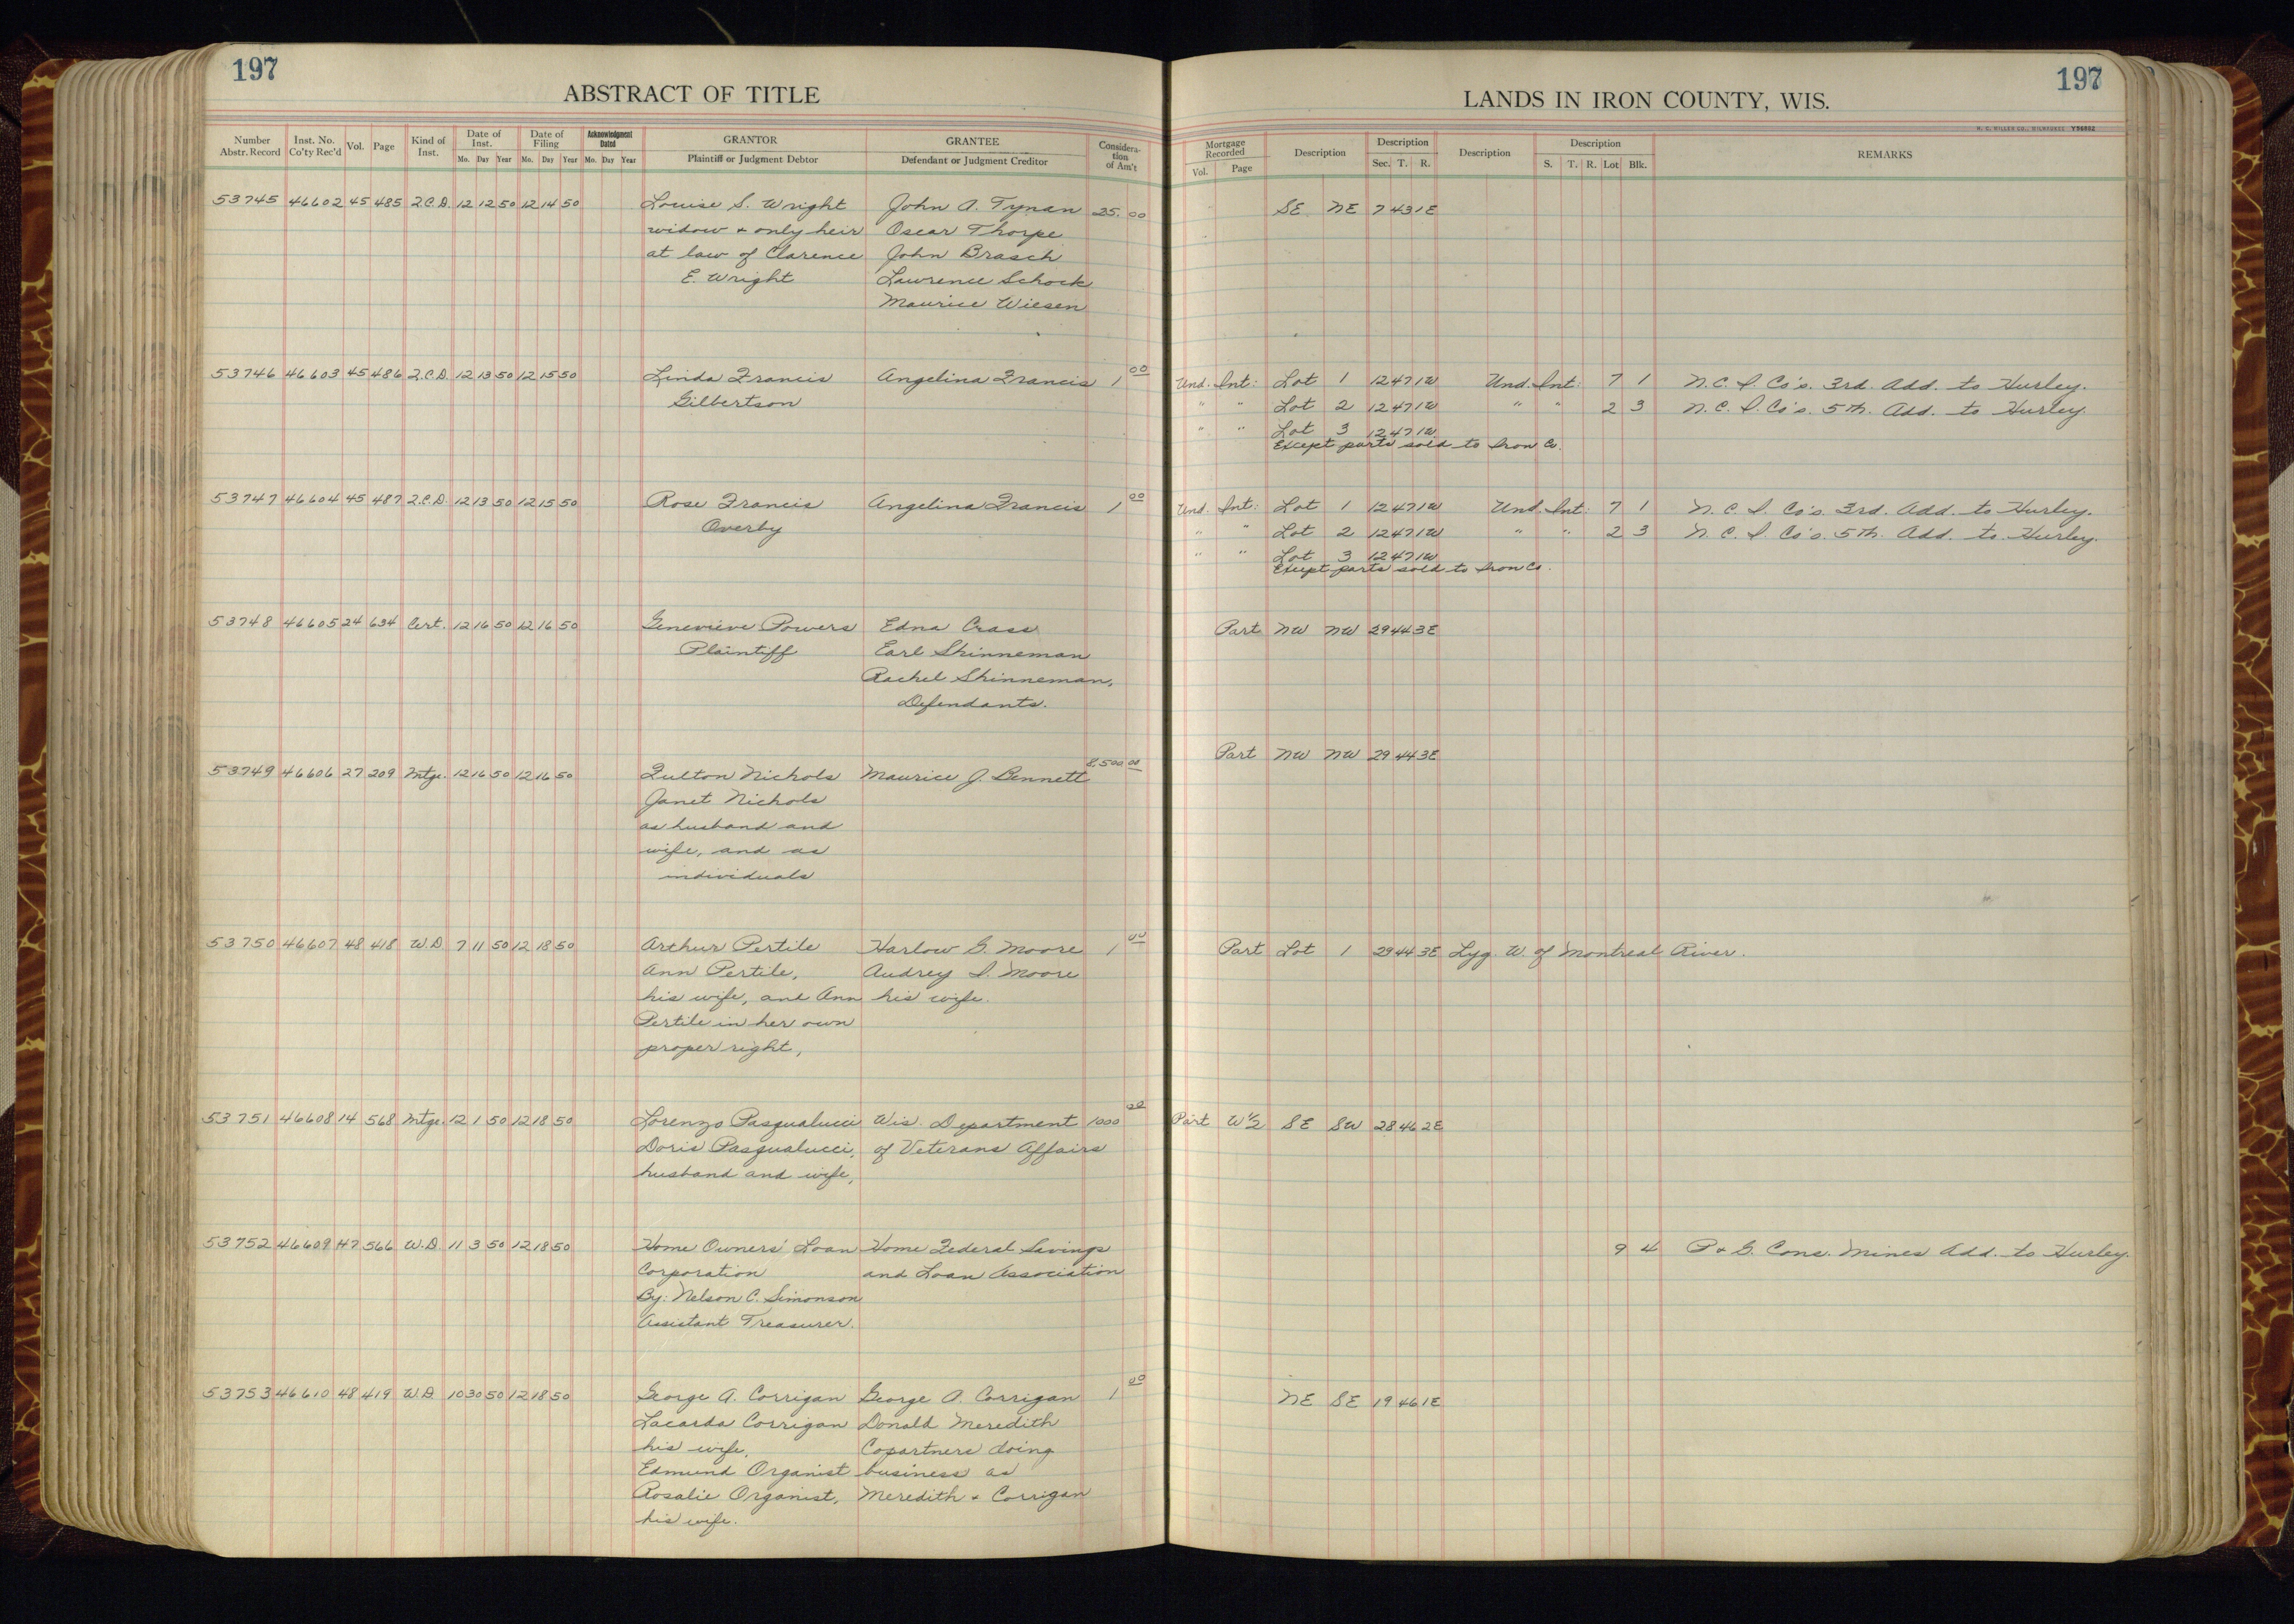 197
197
ABSTRACT OF TITLE
LANDS IN IRON COUNTY, WIS.
H. C. MILLER CO., MILWAUKEE
Number Abstr. Record Inst. No. Co'ty Rec'd Vol. Page Kind of Inst. Date of Inst. Mo. Day Year Date of Filing Mo. Day Year Acknowledgment Dated Mo. Day Year GRANTOR Plaintiff or Judgment Debtor GRANTEE Defendant or Judgment Creditor Consideration of Am't
Mortgage Recorded Vol. Page Description Description Sec. T. R. Description Description S. T. R. Lot Blk. REMARKS
53745 46602 45 485 Q.C.D. 12 12 50 12 14 50 Louise S. Wright John A. Tynan 25.00 SE NE 7 43 1E
widow + only heir Oscar Thorpe
at law of Clarence John Brasch
E. Wright Lawrence Schock
Maurice Wiesen
53746 46603 45 486 Q.C.D. 12 13 50 12 15 50 Linda Francis Angelina Francis 1 00 Und. Int: Lot 1 12 47 1W Und. Int: 7 1 N.C.I. Co's. 3rd. Add. to Hurley.
Gilbertson " " Lot 2 12 47 1W " " 2 3 N.C.I. Co's. 5th. Add. to Hurley.
" " Lot 3 12 47 1W
Except parts sold to Iron Co.
53747 46604 45 487 Q.C.D. 12 13 50 12 15 50 Rose Francis Angelina Francis 1 00 Und. Int: Lot 1 12 47 1W Und. Int: 7 1 N.C.I. Co's. 3rd. Add. to Hurley.
Overby " " Lot 2 12 47 1W " " 2 3 N.C.I. Co's. 5th. Add. to Hurley.
" " Lot 3 12 47 1W
Except parts sold to Iron Co.
53748 46605 24 634 Cert. 12 16 50 12 16 50 Genevieve Powers Edna Crass Part NW NW 29 44 3E
Plaintiff Earl Shinneman
Rachel Shinneman,
Defendants.
53749 46606 27 209 Mtge. 12 16 50 12 16 50 Fulton Nichols Maurice J. Bennett 8,500 00 Part NW NW 29 44 3E
Janet Nichols
as husband and
wife, and as
individuals
53750 46607 48 418 W.D. 7 11 50 12 18 50 Arthur Pertile Harlow G. Moore 1 00 Part Lot 1 29 44 3E Lyg. W. of Montreal River.
Ann Pertile, Audrey I. Moore
his wife, and Ann his wife.
Pertile in her own
proper right,
53751 46608 14 568 Mtge. 12 1 50 12 18 50 Lorenzo Pasqualucci Wis. Department 1000 00 Part W½ SE SW 28 46 2E
Doris Pasqualucci, of Veterans Affairs
husband and wife,
53752 46609 47 566 W.D. 11 3 50 12 18 50 Home Owners' Loan Home Federal Savings 9 4 P. & G. Cons. Mines Add. to Hurley.
Corporation and Loan Association
By: Nelson C. Simonson
Assistant Treasurer.
53753 46610 48 419 W.D. 10 30 50 12 18 50 George A. Corrigan George A. Corrigan 1 00 NE SE 19 46 1E
Lacarda Corrigan Donald Meredith
his wife, Copartners doing
Edmund Organist business as
Rosalie Organist, Meredith + Corrigan
his wife.